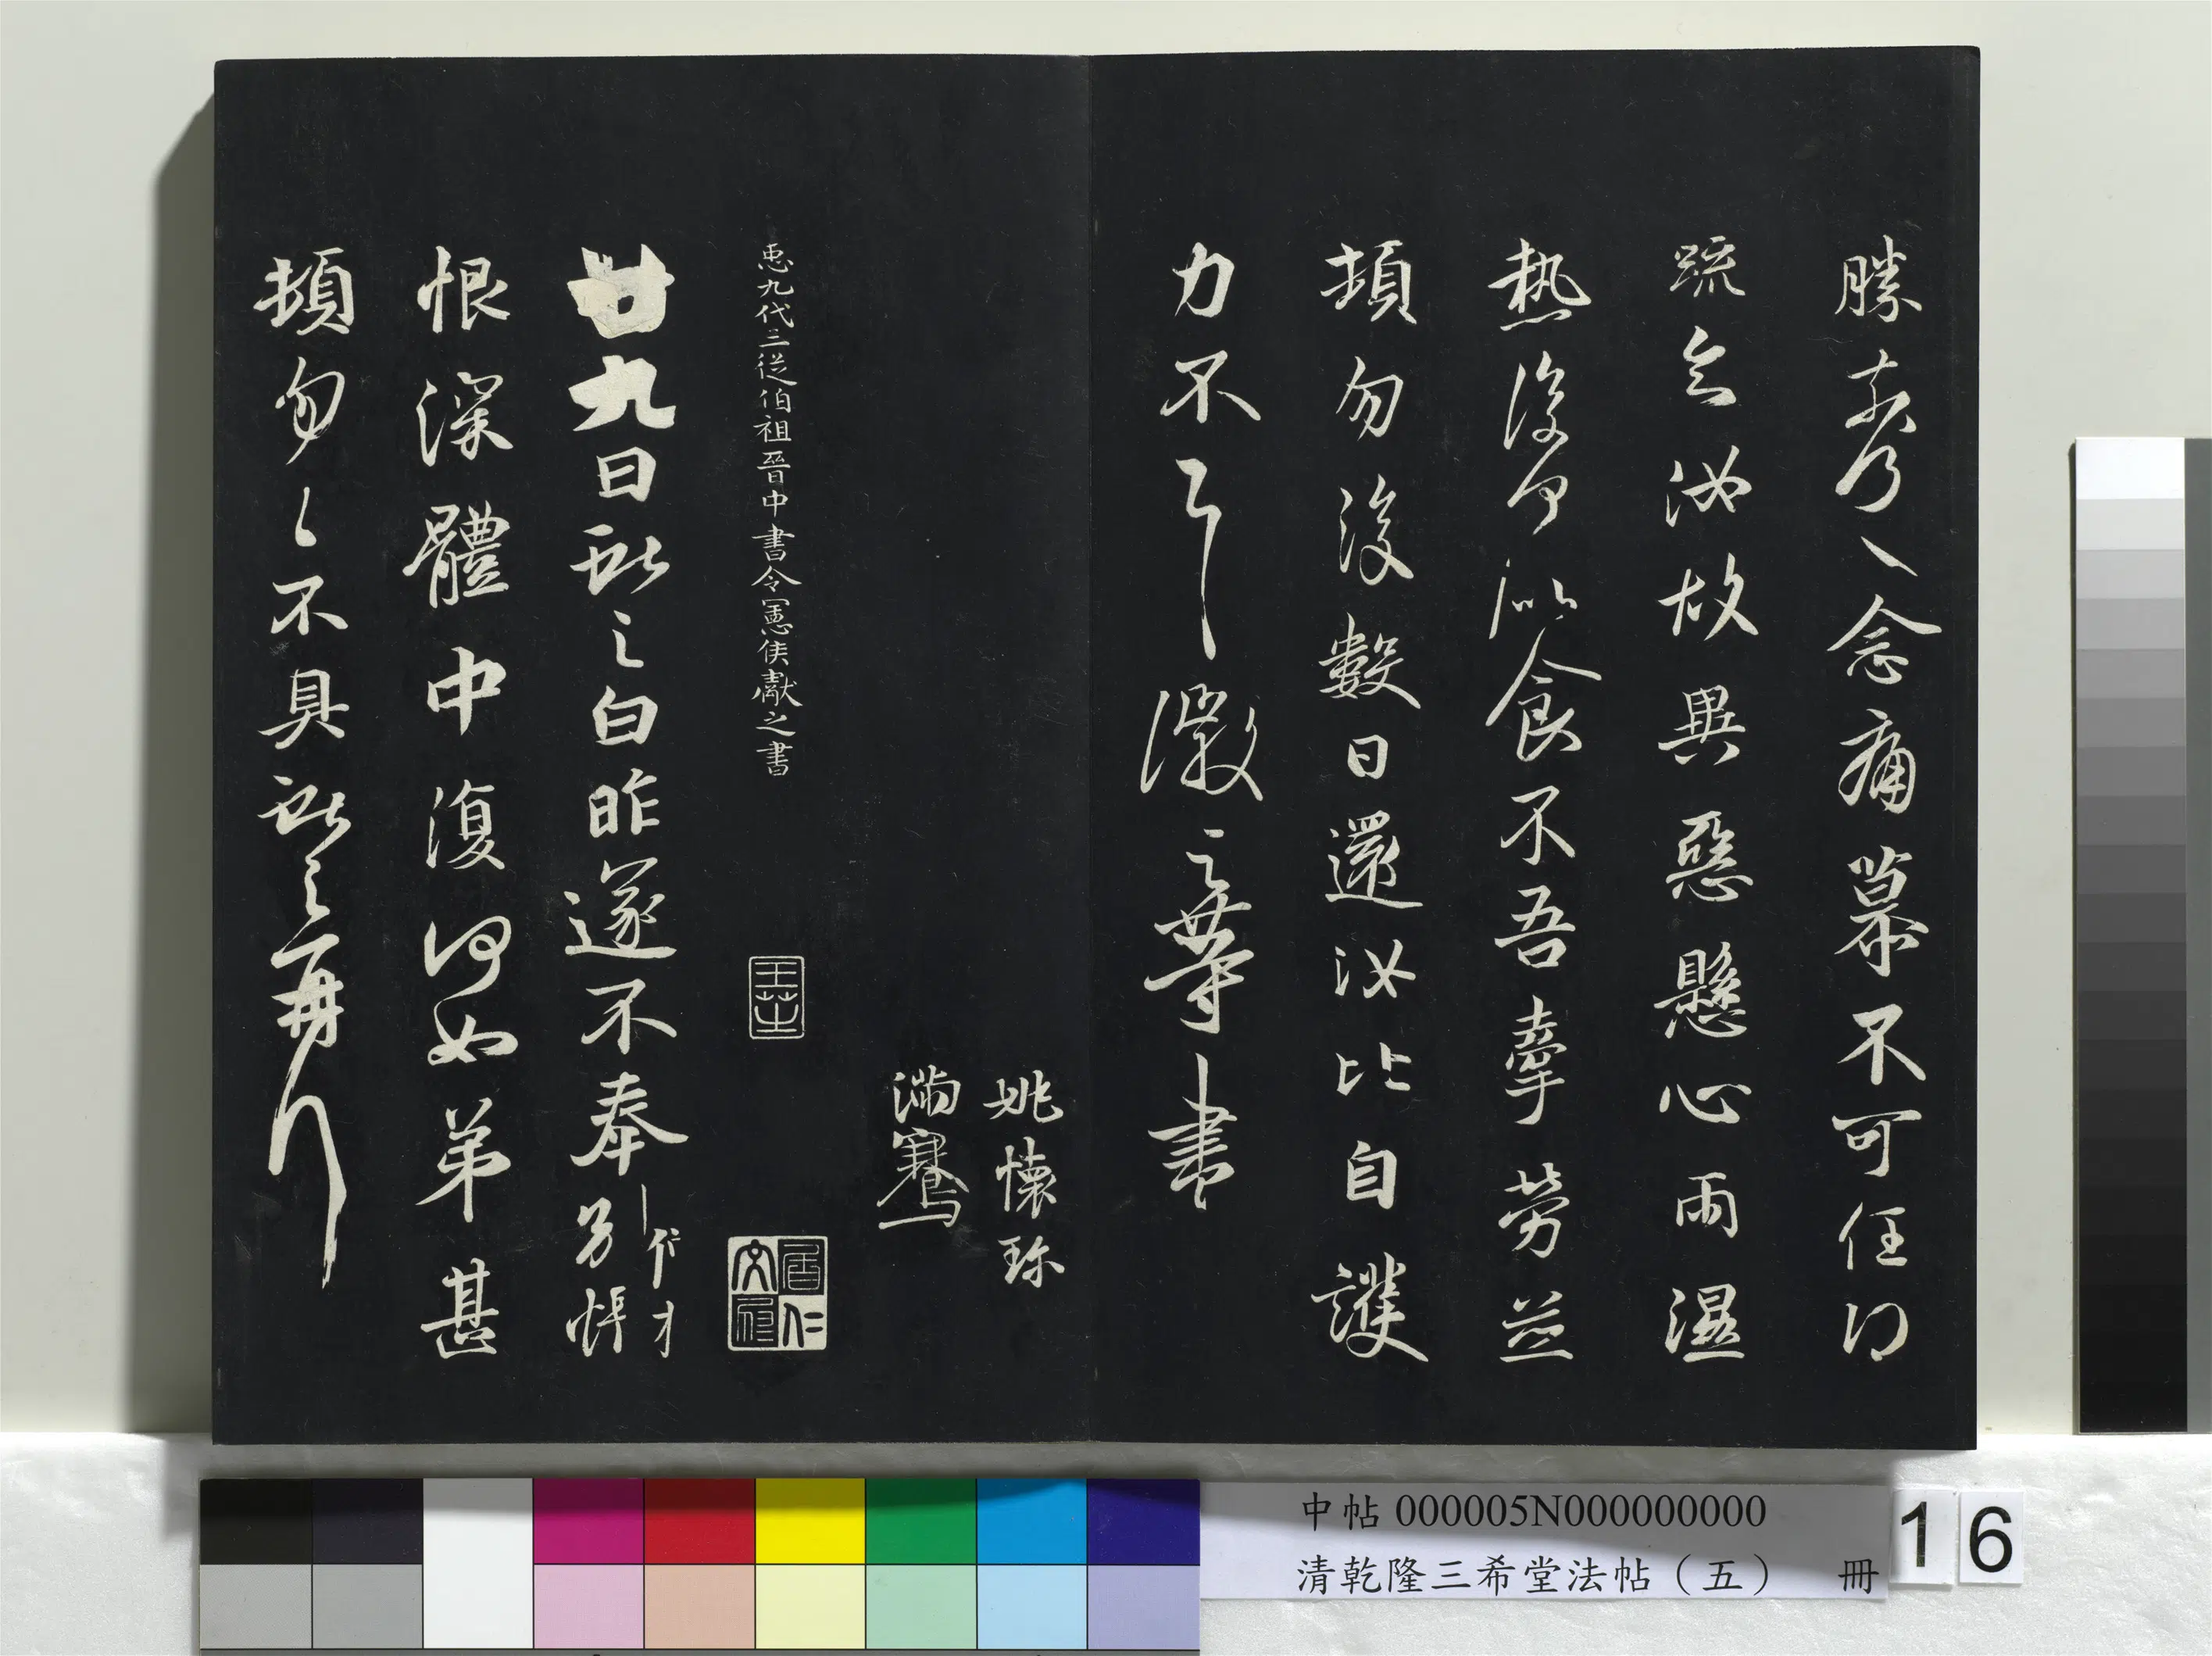 勝奈何〻念痛慕不可任得
疏知汝故異惡懸心雨濕
熱復何似食不吾牽勞並
頓勿復數日還汝比自護
力不一一徽之等書
姚懷珍
滿騫
𢘑九代三從伯祖晉中書令憲侯獻之書
王芝
廿九日獻之白昨遂不奉別悵
恨深體中復何如弟甚
頓匆〻不具獻之再拜
中帖 000005N000000000
清乾隆三希堂法帖（五） 冊
16